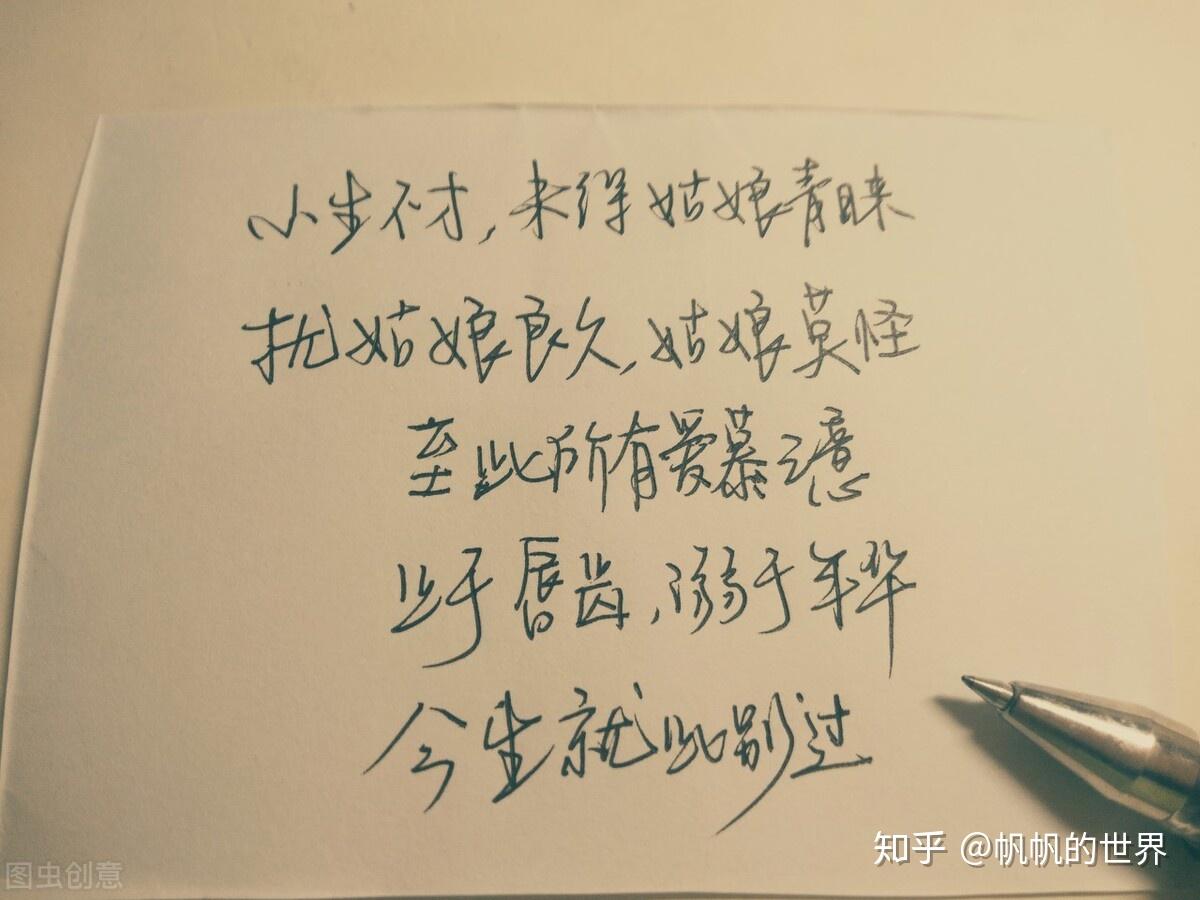 小生不才,未得姑娘青睐
扰姑娘良久,姑娘莫怪
至此所有爱慕之意
止于唇齿,溺于年华
今生就此别过
知乎 @帆帆的世界
图虫创意